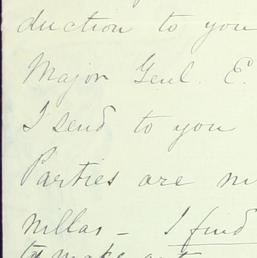 duction to you
Major Genl. E.
I send to you
Parties are
nillas - I find
to make out